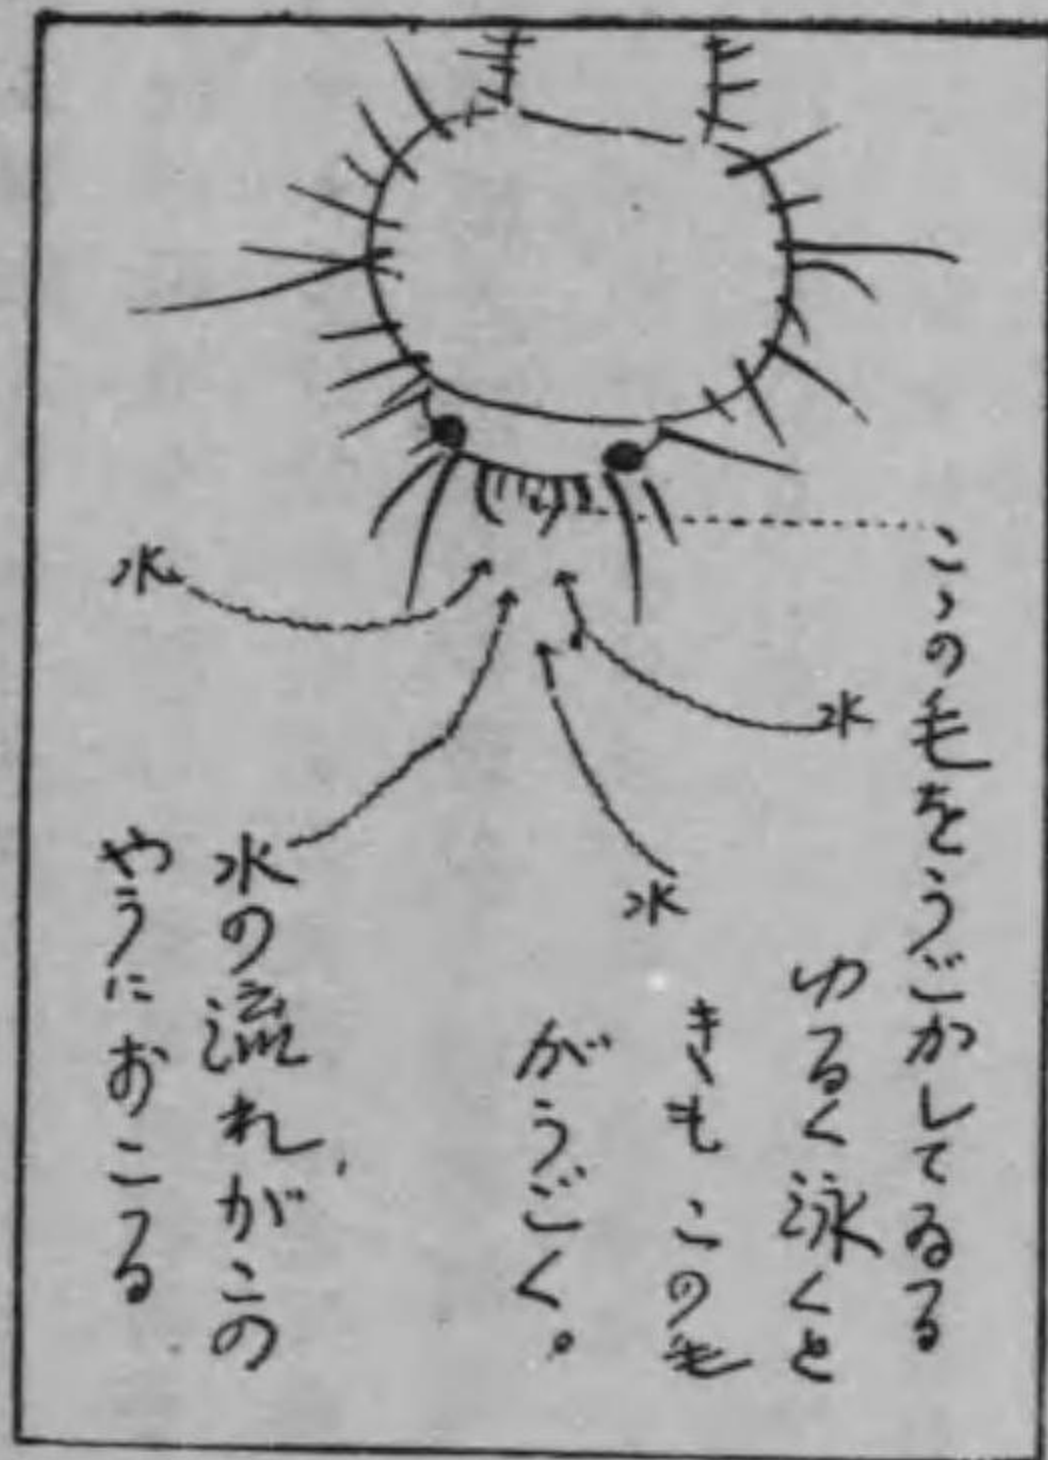 こゝの毛をうごかしてゐる
ゆるく泳くと
きもこの毛
がうごく。
水の流れがこの
やうにおこる
水
水
水